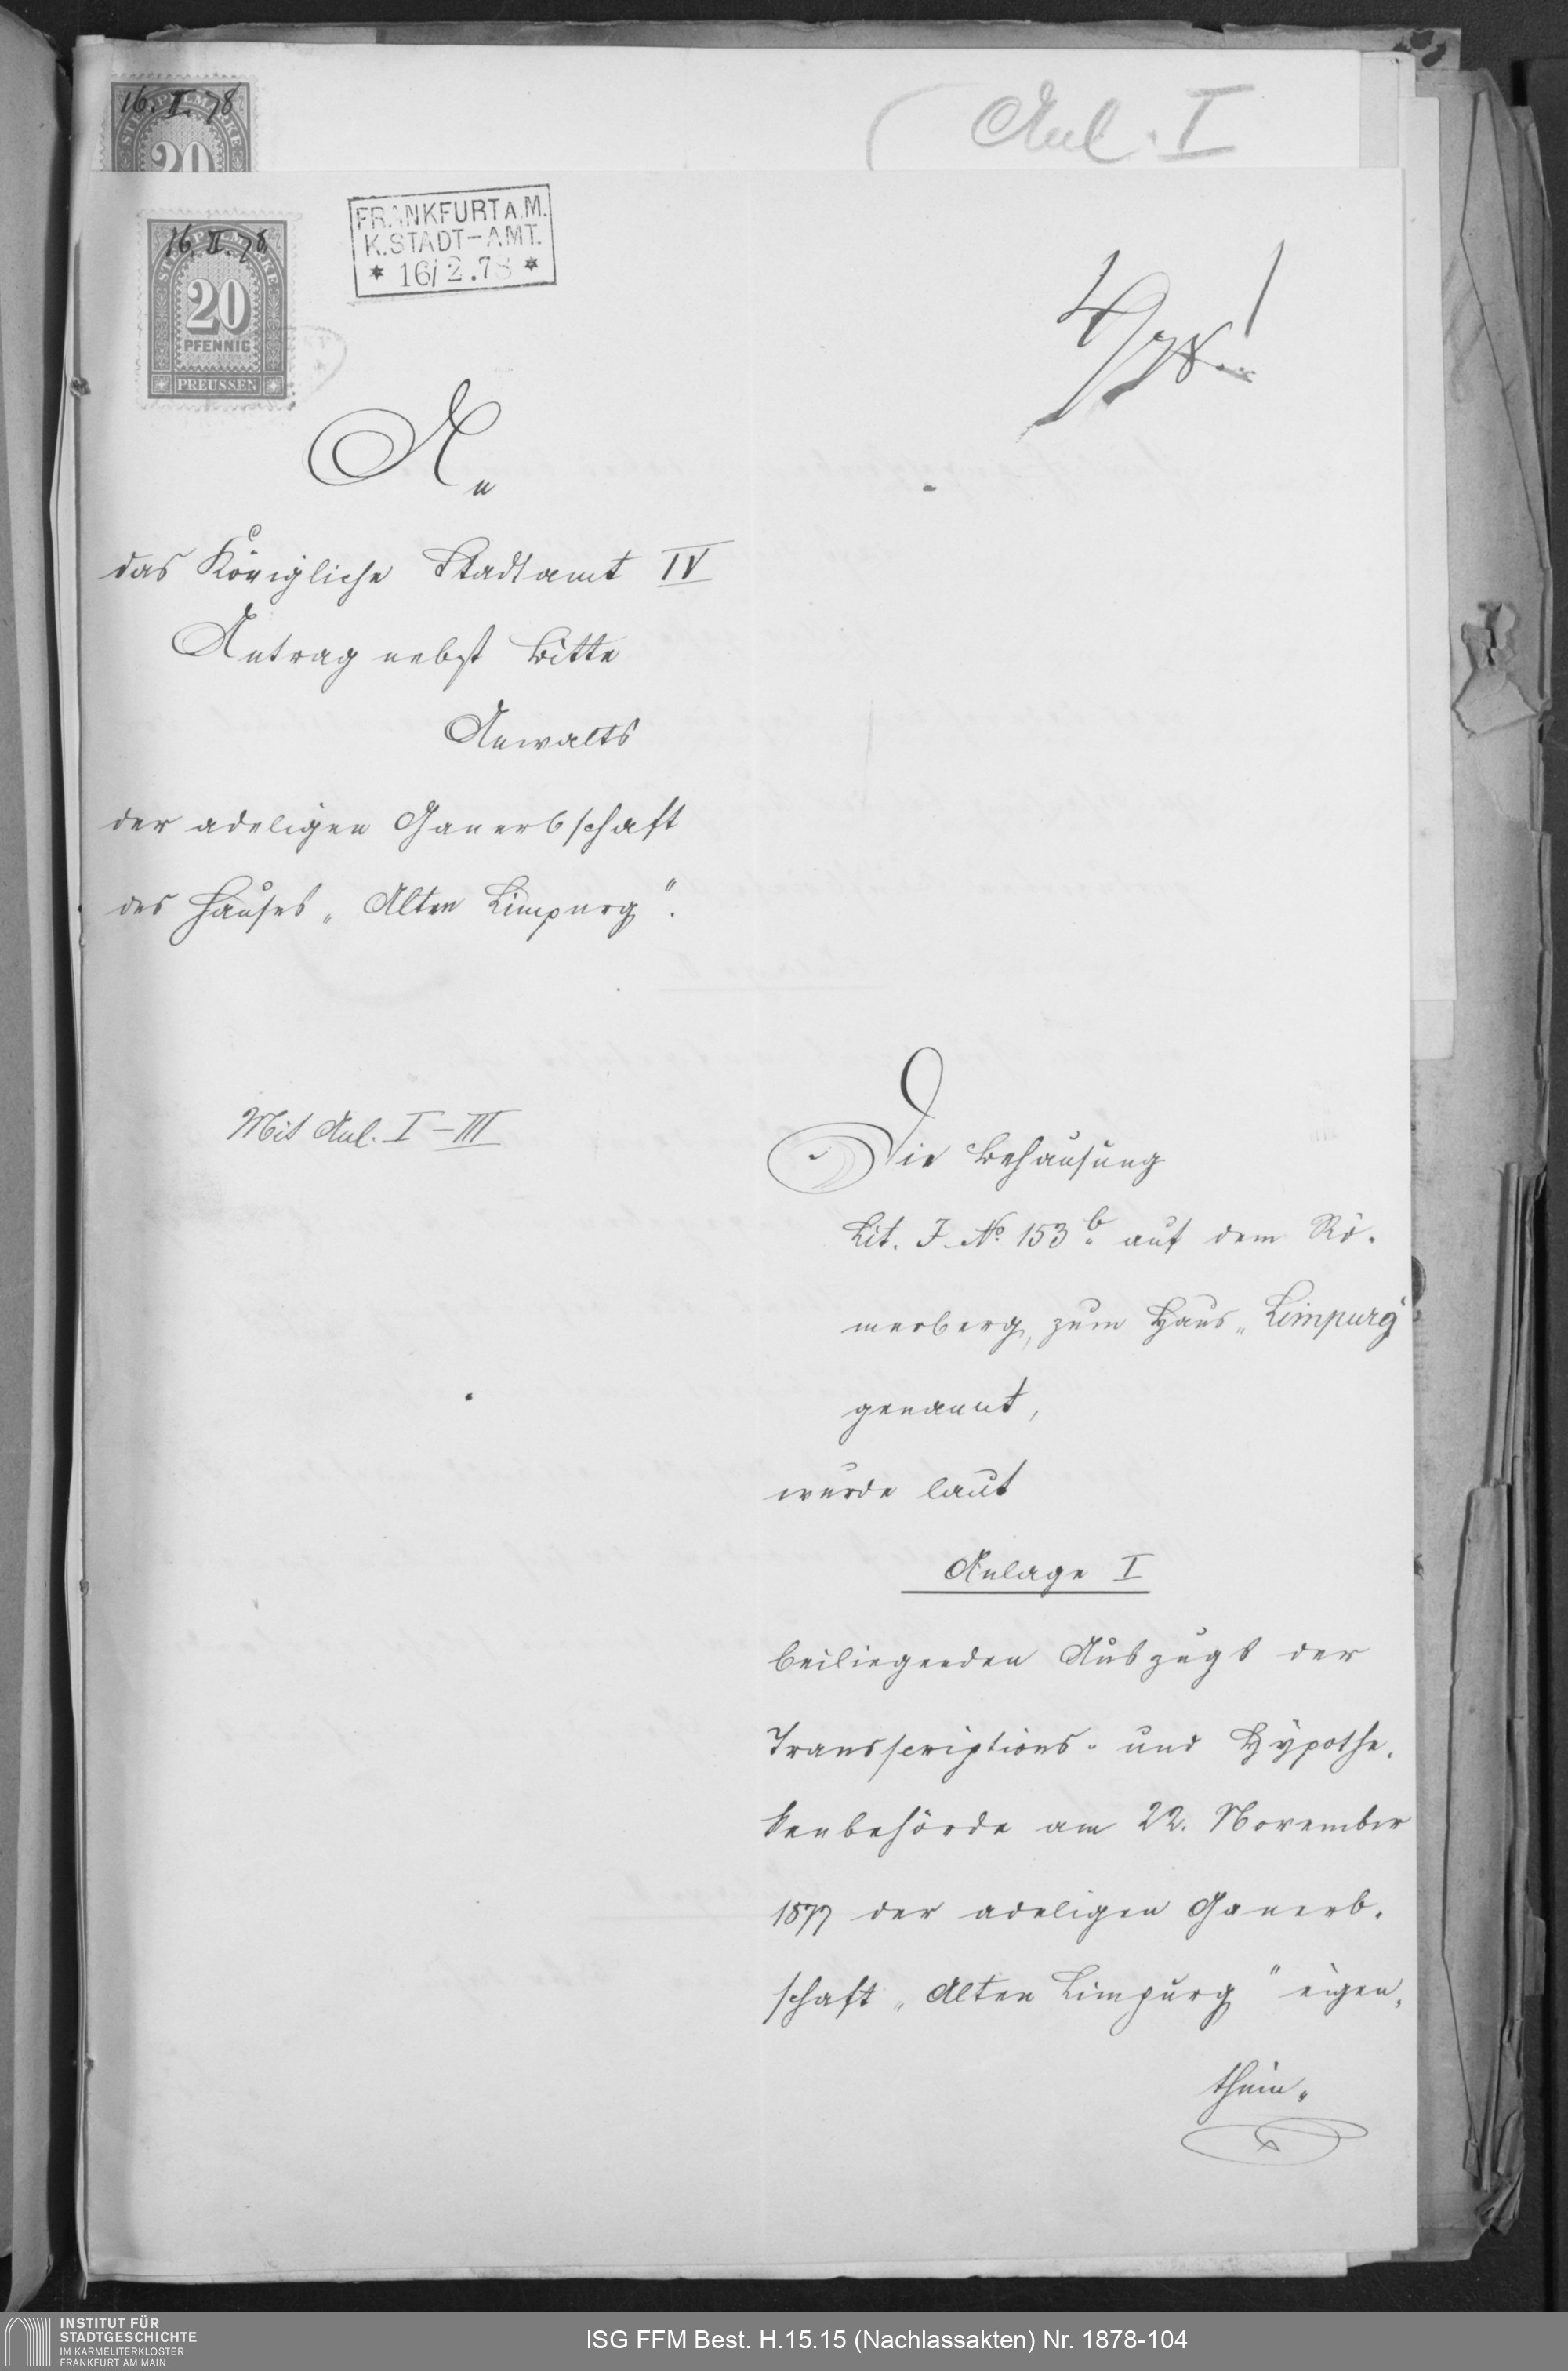 16. II. 78
STEMPELMARKE
20
Anl. I
16. II. 78
STEMPELMARKE
20
PFENNIG
PREUSSEN
FRANKFURT A.M.
K.STADT-AMT.
* 16/2.78 *
An
das Königliche Stadtamt IV
Antrag nebst Bitte
Anwalts
der adeligen Ganerbschaft
des Hauses „Alten Limpurg".
Mit Anl. I–III
Die Behausung
Lit. J. No. 153b auf dem Rö-
merberg, zum Haus „Limpurg"
genannt,
wurde laut
Anlage I
beiliegenden Auszugs der
Transscriptions- und Hypothe-
kenbehörde am 22. November
1877 der adeligen Ganerb-
schaft „Alten Limpurg" eigen-
thüm-
INSTITUT FÜR
STADTGESCHICHTE
IM KARMELITERKLOSTER
FRANKFURT AM MAIN
ISG FFM Best. H.15.15 (Nachlassakten) Nr. 1878-104